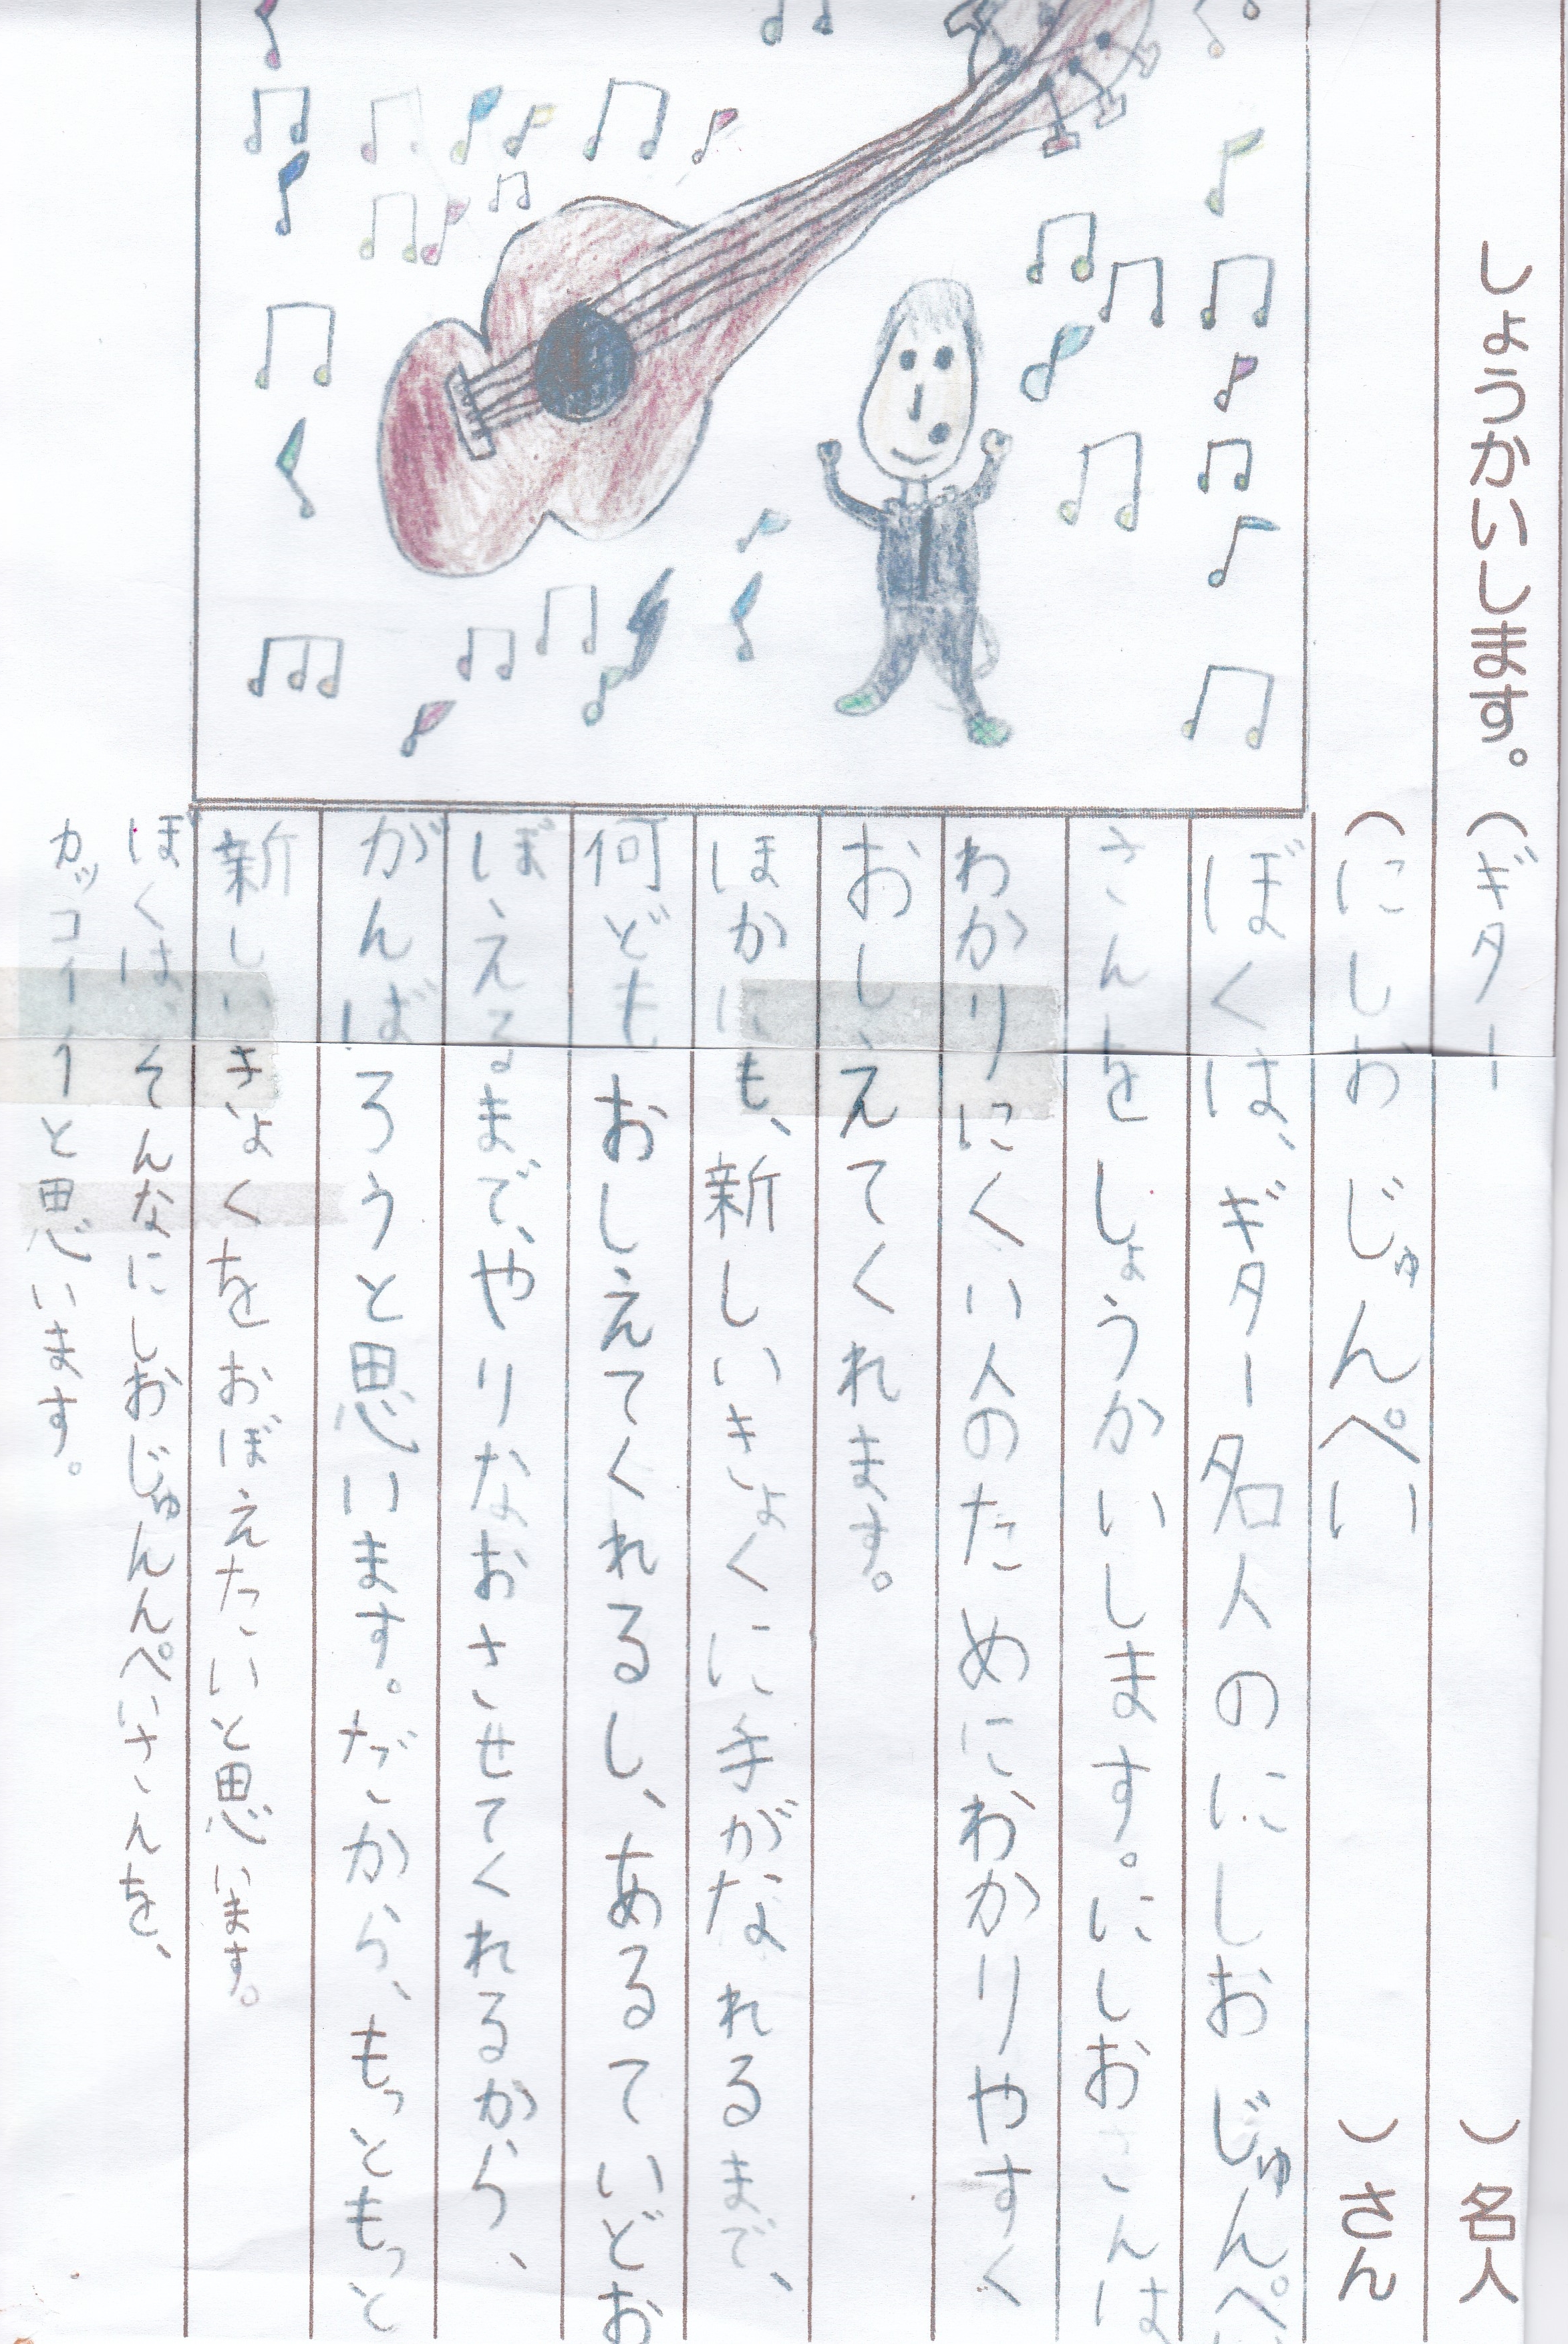 しょうかいします。（ギター　）名人
（にしお じゅんぺい　）さん
ぼくは、ギター名人のにしおじゅんぺい
さんをしょうかいします。にしおさんは
わかりにくい人のためにわかりやすく
おしえてくれます。
ほかにも、新しいきょくに手がなれるまで、
何どもおしえてくれるし、あるていどお
ぼえるまで、やりなおさせてくれるから、
がんばろうと思います。だから、もっともっと
新しいきょくをおぼえたいと思います。
ぼくは、そんなにしおじゅんぺいさんを、
カッコイイと思います。